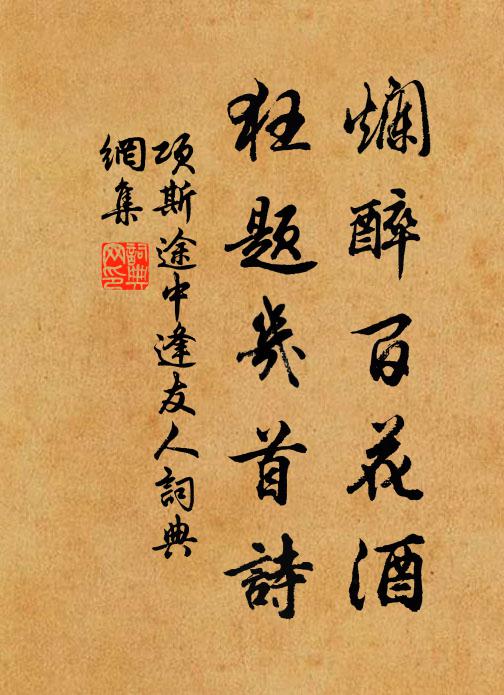 爛醉百花酒
狂題幾首詩
項斯途中逢友人詞典
網集
詞典
网印